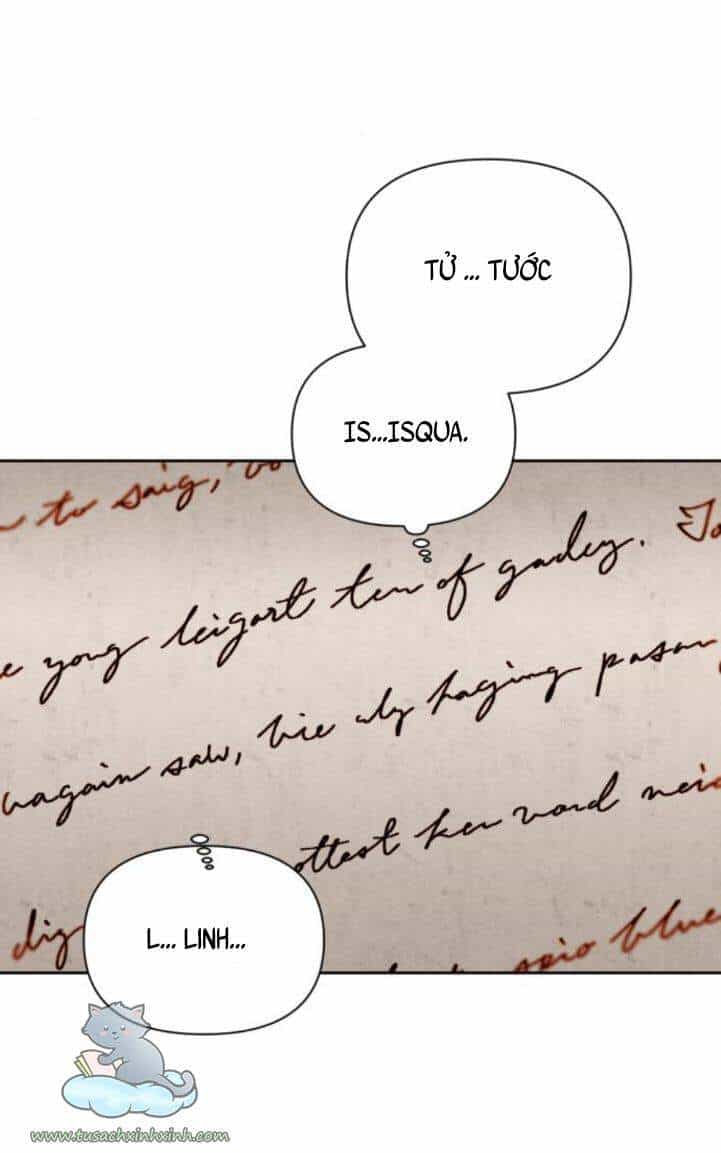 TỬ ... TƯỚC
IS...ISQUA.
to saig,
yong leigart ten of gadey.
wagain saw, hie aly haging pasar
ottest ken vard
dig
seio blue
L... LINH...
www.tusachxinhxinh.com